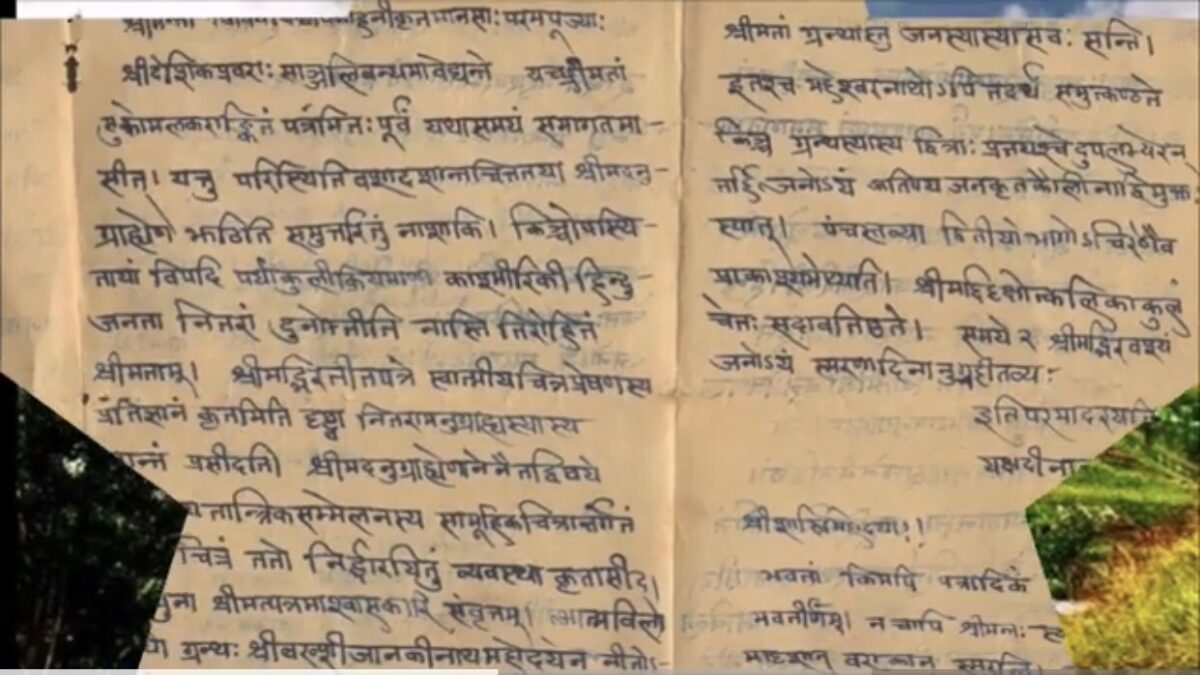 परमपूज्याः
श्रीदेशिकप्रवराः साञ्जलिबन्धमावेद्यन्ते यच्छ्रीमतां
सुकोमलकराङ्कितं पत्रमितः पूर्वं यथासमयं समागतमा-
सीत्। यत्तु परिस्थितिवशादशान्तचित्ततया श्रीमदनु-
ग्राह्येण झठिति समुत्तरितुं नाशाकि। किञ्चोपस्थि-
तायां विपदि पर्याकुलीक्रियमाणा काश्मीरिकी हिन्दु-
जनता नितरां दुनोम्नीति नास्ति तिरोहितं
श्रीमताम्। श्रीमद्भिरतीतपत्रे स्वात्मीयचित्रप्रेषणस्य
प्रतिज्ञानं कृतमिति दृष्ट्वा नितरामनुग्राह्यस्यास्य
प्रसीदति। श्रीमदनुग्राह्येणानेनैतद्विषये
तान्त्रिकसम्मेलनस्य सामूहिकचित्रान्तर्गतं
चित्रं ततो निर्द्धारयितुं व्यवस्था कृतासीद्।
श्रीमत्पत्रमाश्वासकारि संवृत्तम्।
ग्रन्थः श्रीवरश्रीजानकीनाथमहोदयेन नीतो-
श्रीमतां ग्रन्थास्तु जनस्यास्यासवः सन्ति।
इतश्च महेश्वरनाथोऽपि तदर्थं समुत्कण्ठते
किञ्च ग्रन्थस्यास्य द्वित्राः प्रतयश्चेदुपलभ्येरन्
तर्हि जनोऽयं कतिपयजनकृतकौलीनाद्विमुक्तः
स्यात्। पंचस्तव्या द्वितीयो भागोऽचिरेणैव
प्राकाश्यमेष्यति। श्रीमद्दिदृक्षोत्कलिकाकुलं
चेतः सदावतिष्ठते। समये २ श्रीमद्भिरवश्यं
जनोऽयं स्मरणादिनानुग्रहीतव्यः
इति परमादरयति
श्रीशास्त्रिमहोदयाः!
भवतां किमपि पत्रादिकं
न चापि श्रीमन्तः
वराकान्